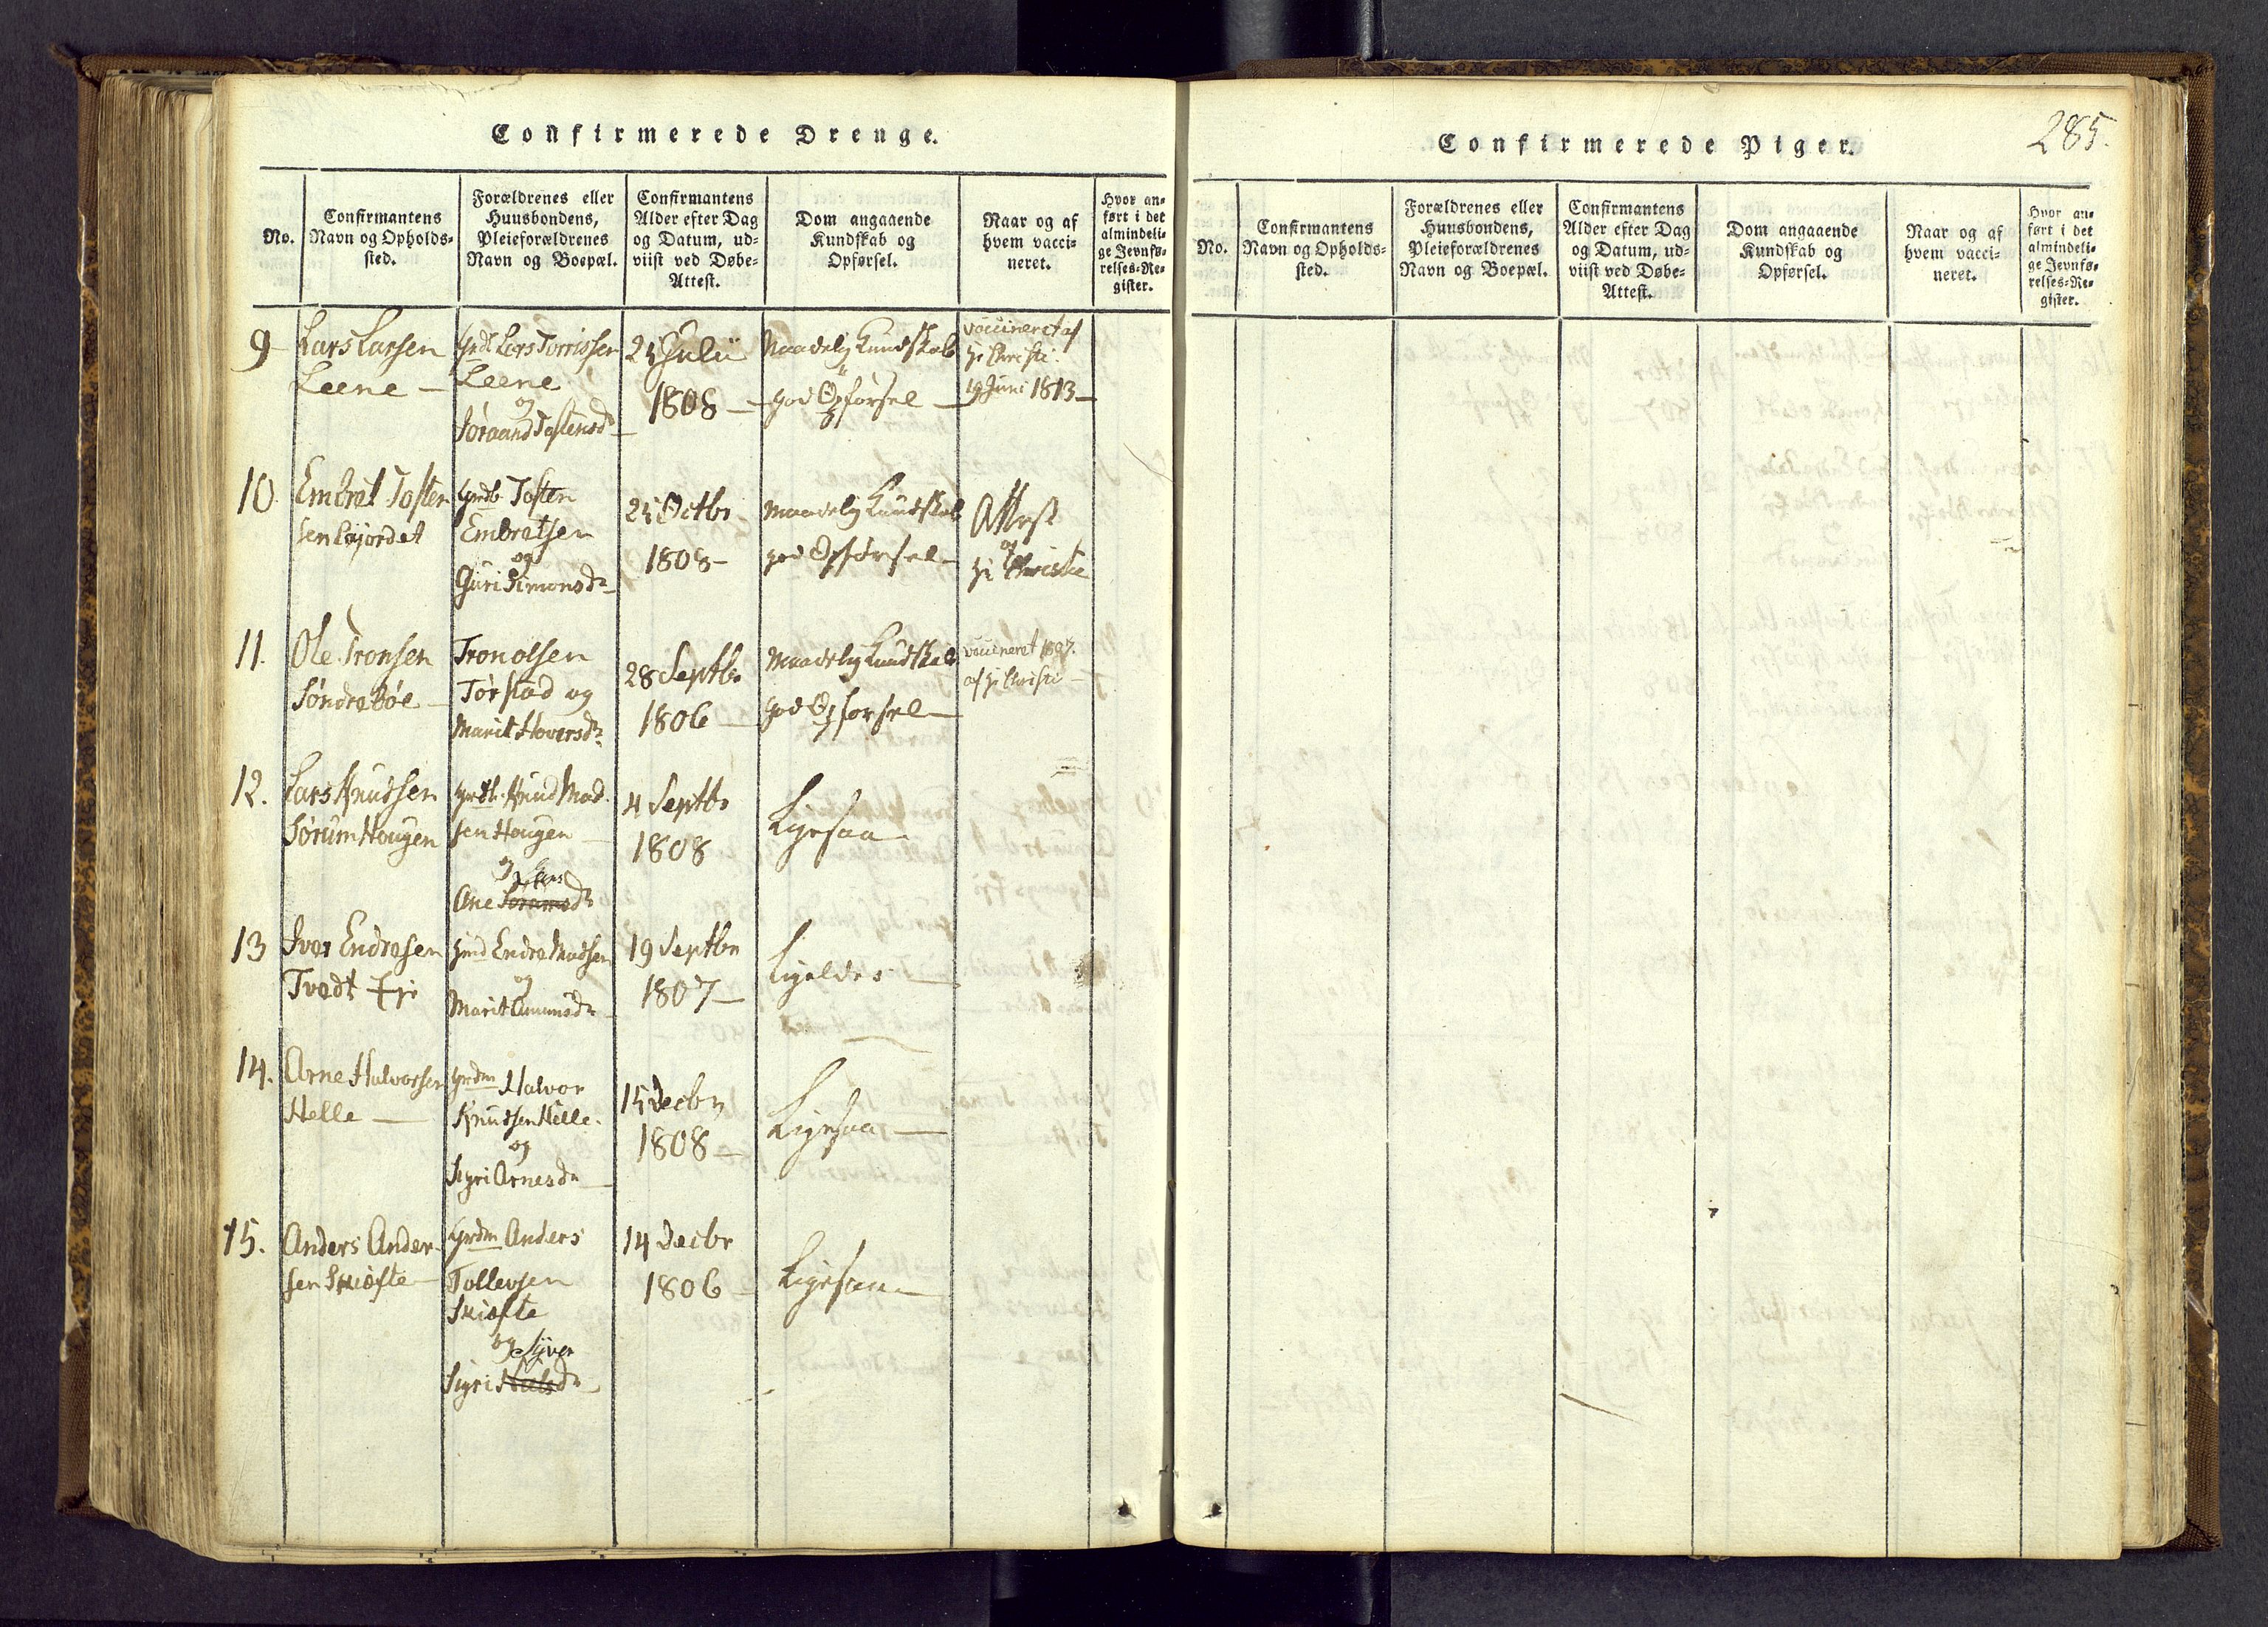 Confirmerede Drenge.
No.
Confirmantens
Navn og Opholds-
sted.
Forældrenes eller
Huusbondens,
Pleieforældrenes
Navn og Boepæl.
Confirmantens
Alder efter Dag
og Datum, ud-
viist ved Døbe-
Attest.
Dom angaaende
Kundskab og
Opførsel.
Naar og af
hvem vacci-
neret.
Hvor an-
ført i det
almindeli-
ge Jevnfø-
relses-Re-
gister.
9
Lars Larsen
Leene
Lars Torrissen
Leene
og
Jøraand Tostensd
24 Julii
1808
Maadelig Kundskab
god Opførsel
vaccineret af
Hr Christie
19 Juni 1813
10
Embret Tosten
sen
Tosten
Embretsen
og
Guri Simonsdr
25 Octbr
1808
Maadelig Kundskab
god Opførsel
Attest
af
Hr Christie
11.
Ole Tronsen
Søndrebøe
Tron Olsen
Torstad og
Marit Hoversdr
28 Septbr
1806
Maadelig Kundskab
god Opførsel
vaccineret 1807
af Hr Christie
12.
Lars Knudsen
Sørum Hougen
Knud Mad
sen Hougen
og
Ane
4 Septbr
1808
Ligesaa
13
Iver Endresen
Tvedt Eje
Endre Madsen
og
Marit Amunsdr
19 Septbr
1807
Ligeldes
14.
Arne Halvorsen
Helle
Grdm Halvor
Knudsen Helle
og
Sigri Arnesdr
15 Decbr
1808
Ligesaa
15.
Anders Ander
sen Skiøfte
Grdm Anders
Tollevsen
Skiøfte
og Syver
Sigri Nielsdr
14 Decbr
1806
Ligesaa
285.
Confirmerede Piger.
No.
Confirmantens
Navn og Opholds-
sted.
Forældrenes eller
Huusbondens,
Pleieforældrenes
Navn og Boepæl.
Confirmantens
Alder efter Dag
og Datum, ud-
viist ved Døbe-
Attest.
Dom angaaende
Kundskab og
Opførsel.
Naar og af
hvem vacci-
neret.
Hvor an-
ført i det
almindeli-
ge Jevnfø-
relses-Re-
gister.